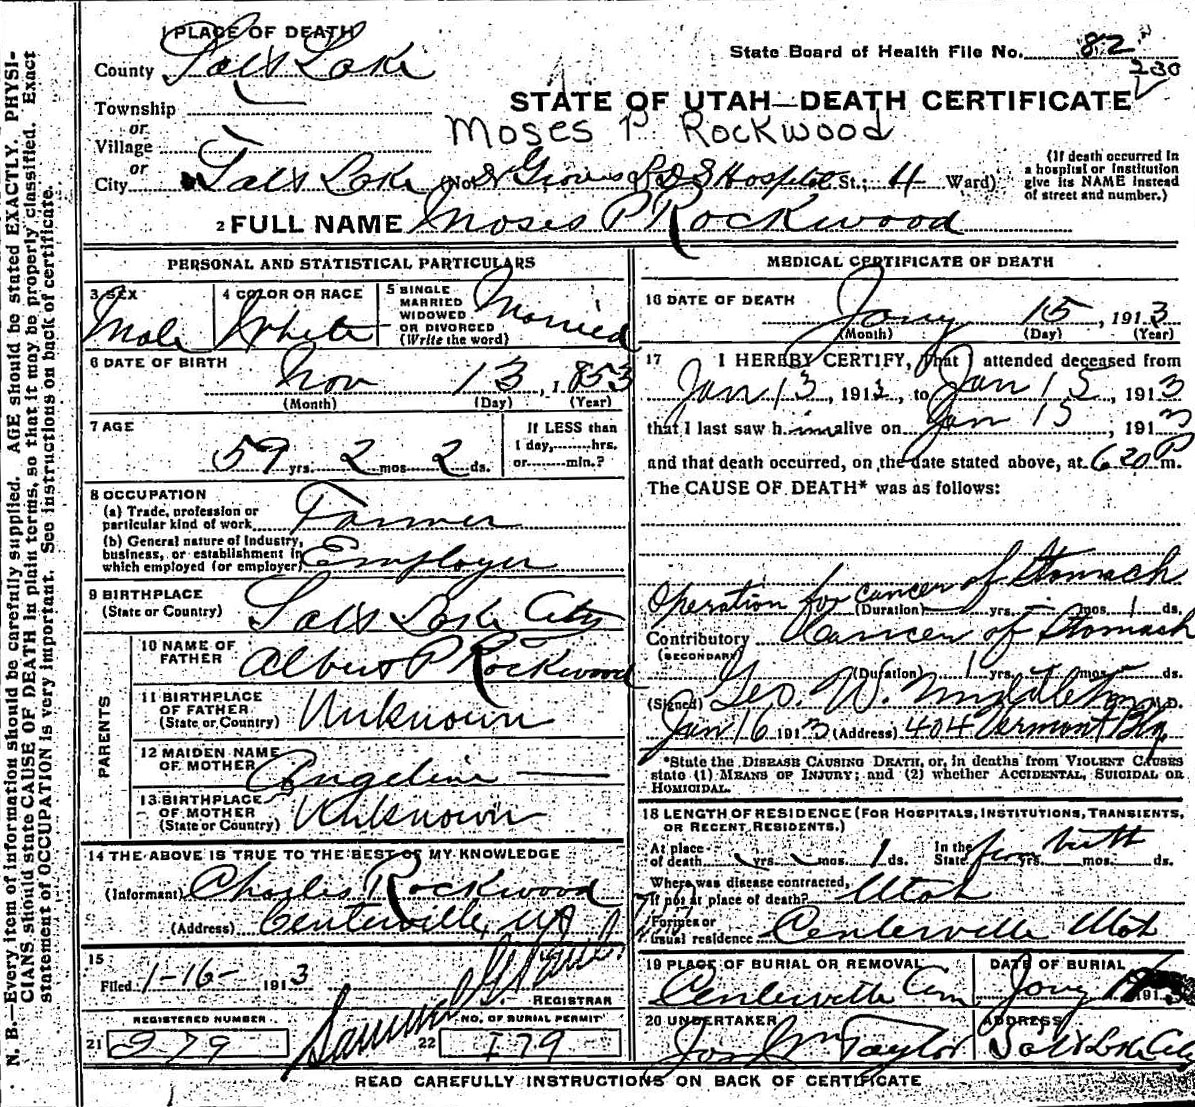 1 PLACE OF DEATH
County Salt Lake
State Board of Health File No. 82
230
Township
or
Village
or
City Salt Lake
STATE OF UTAH—DEATH CERTIFICATE
Moses P Rockwood
(No. Groves L D S Hospital St.; 4 Ward)
(If death occurred in a hospital or institution give its NAME instead of street and number.)
2 FULL NAME Moses P Rockwood
PERSONAL AND STATISTICAL PARTICULARS
3 SEX
Male
4 COLOR OR RACE
White
5 SINGLE
MARRIED
WIDOWED
OR DIVORCED
(Write the word)
Married
6 DATE OF BIRTH
Nov 13, 1853
(Month) (Day) (Year)
7 AGE
59 yrs. 2 mos. 2 ds.
If LESS than
1 day,........hrs.
or........min.?
8 OCCUPATION
(a) Trade, profession or
particular kind of work Farmer
(b) General nature of industry,
business, or establishment in
which employed (or employer) Employer
9 BIRTHPLACE
(State or Country) Salt Lake City
PARENTS
10 NAME OF
FATHER Albert P Rockwood
11 BIRTHPLACE
OF FATHER
(State or Country) Unknown
12 MAIDEN NAME
OF MOTHER Angeline
13 BIRTHPLACE
OF MOTHER
(State or Country) Unknown
14 THE ABOVE IS TRUE TO THE BEST OF MY KNOWLEDGE
(Informant) Charles Rockwood
(Address) Centerville, Ut
15
Filed 1-16- 1913
REGISTRAR
REGISTERED NUMBER
21 279
NO. OF BURIAL PERMIT
22 I79
MEDICAL CERTIFICATE OF DEATH
16 DATE OF DEATH
Jany 15, 1913
(Month) (Day) (Year)
17 I HEREBY CERTIFY, That I attended deceased from
Jan 13, 1913, to Jan 15, 1913
that I last saw him alive on Jan 15, 1913
and that death occurred, on the date stated above, at 6 20 P m.
The CAUSE OF DEATH* was as follows:
Operation for cancer of Stomach
(Duration) yrs. - mos. 1 ds.
Contributory Cancer of Stomach
(SECONDARY)
(Duration) 1 yrs. - mos. - ds.
(Signed) Geo. W. Middleton M.D.
Jan 16 1913 (Address) 404 Vermont Blg.
*State the DISEASE CAUSING DEATH, or, in deaths from VIOLENT CAUSES
state (1) MEANS OF INJURY; and (2) whether ACCIDENTAL, SUICIDAL OR
HOMICIDAL.
18 LENGTH OF RESIDENCE (FOR HOSPITALS, INSTITUTIONS, TRANSIENTS,
OR RECENT RESIDENTS.)
At place
of death yrs. mos. 1 ds.
In the
State from birth yrs. mos. ds.
Where was disease contracted,
if not at place of death? Utah
Former or
usual residence Centerville Utah
19 PLACE OF BURIAL OR REMOVAL
Centerville Cem
DATE OF BURIAL
Jany 191
20 UNDERTAKER
Jos Wm Taylor
ADDRESS
Salt Lake City
READ CAREFULLY INSTRUCTIONS ON BACK OF CERTIFICATE
N. B.—Every item of information should be carefully supplied. AGE should be stated EXACTLY. PHYSI-
CIANS should state CAUSE OF DEATH in plain terms, so that it may be properly classified. Exact
statement of OCCUPATION is very important. See instructions on back of certificate.